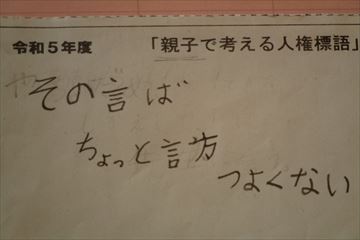 令和5年度 「親子で考える人権標語」
その言ば
ちょっと言方
つよくない